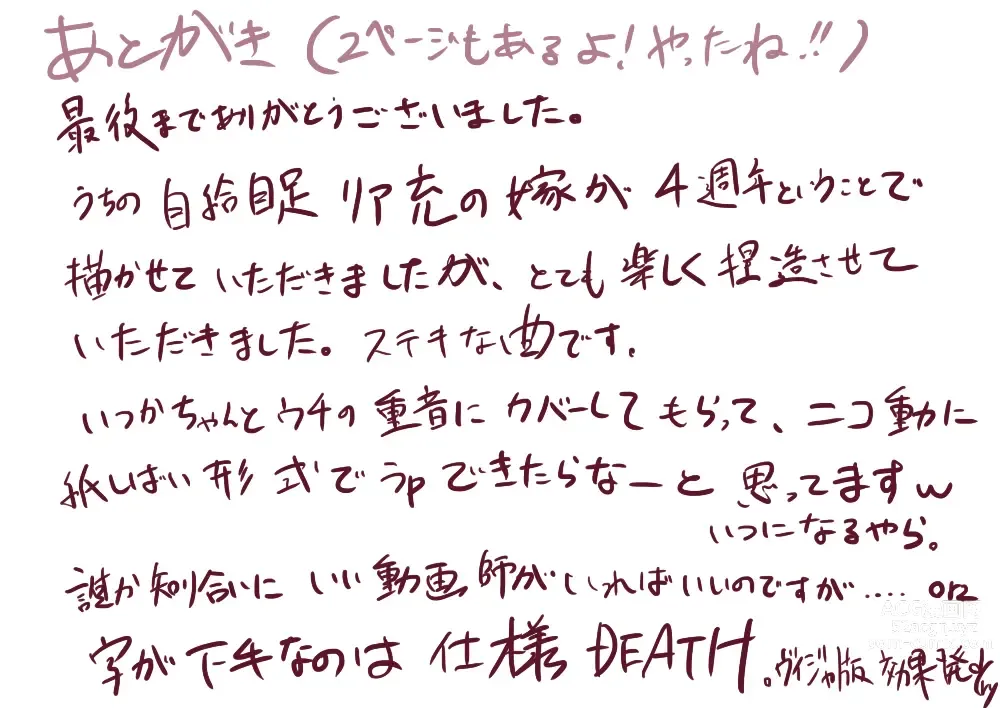 あとがき(2ページもあるよ!やったね!!)
最後までありがとうございました。
うちの自給自足リア充の嫁が4週年ということで
描かせていただきましたが、とても楽しく捏造させて
いただきました。ステキな曲です.
いつかちゃんとウチの重音にカバーしてもらって、ニコ動に
紙しばい形式でうpできたらなーと思ってますw
いつになるやら。
誰か知り合いにいい動画師がいればいいのですが.... orz
字が下手なのは仕様DEATH。ヴィジャ版効果発